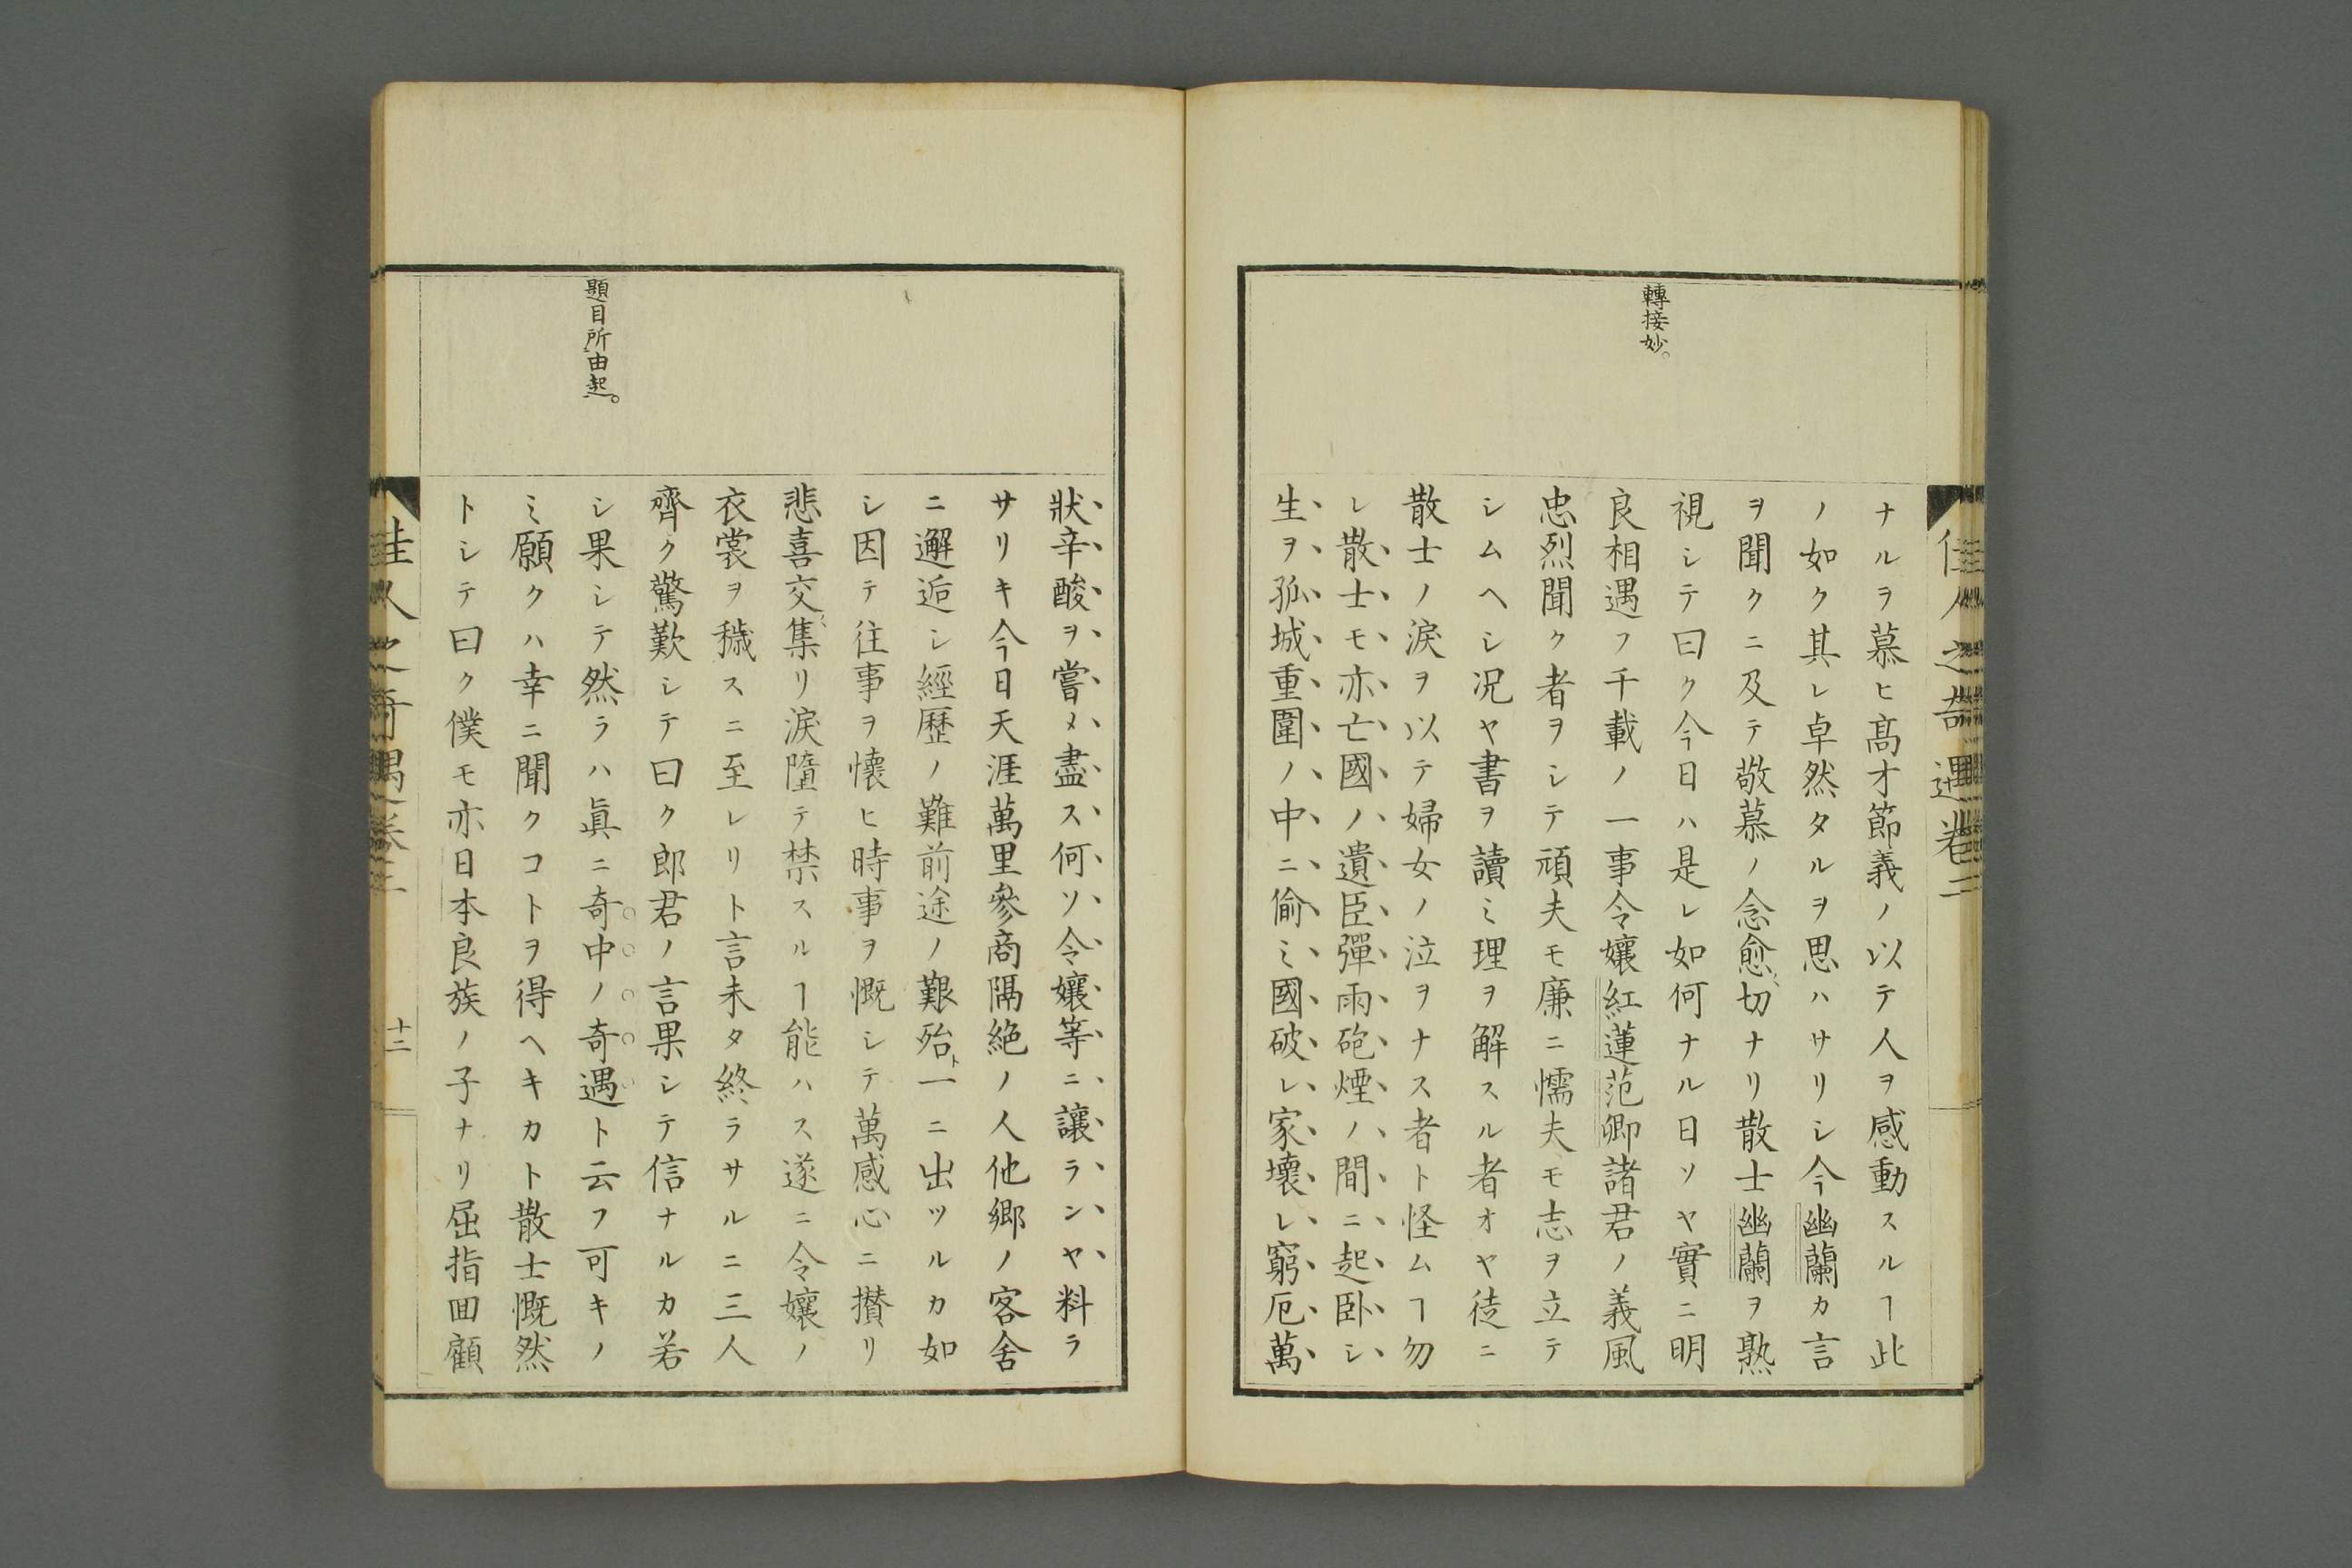 佳人之奇遇卷二
轉接妙。
ナルヲ慕ヒ髙才節義ノ以テ人ヲ感動スルヿ此
ノ如ク其レ卓然タルヲ思ハサリシ今幽蘭カ言
ヲ聞クニ及テ敬慕ノ念愈〻切ナリ散士幽蘭ヲ熟
視シテ曰ク今日ハ是レ如何ナル日ソヤ實ニ明
良相遇フ千載ノ一事令孃紅蓮范卿諸君ノ義風
忠烈聞ク者ヲシテ頑夫モ廉ニ懦夫モ志ヲ立テ
シムヘシ况ヤ書ヲ讀ミ理ヲ解スル者オヤ徒ニ
散士ノ淚ヲ以テ婦女ノ泣ヲナス者ト怪ムヿ勿
レ散士モ亦亡國ノ遺臣彈雨砲煙ノ間ニ起卧シ
生ヲ孤城重圍ノ中ニ偷ミ國破レ家壞レ窮厄萬
狀辛酸ヲ嘗メ盡ス何ソ令孃等ニ讓ランヤ料ラ
サリキ今日天涯萬里參商隔絶ノ人他鄉ノ客舍
ニ邂逅シ經歷ノ難前途ノ艱殆ト一ニ出ツルカ如
シ因テ往事ヲ懷ヒ時事ヲ慨シテ萬感心ニ攅リ
悲喜交〻集リ淚墮テ禁スルヿ能ハス遂ニ令孃ノ
衣裳ヲ穢スニ至レリト言未タ終ラサルニ三人
齊ク驚歎シテ曰ク郎君ノ言果シテ信ナルカ若
シ果シテ然ラハ眞ニ奇中ノ奇遇ト云フ可キノ
ミ願クハ幸ニ聞クコトヲ得ヘキカト散士慨然
トシテ曰ク僕モ亦日本良族ノ子ナリ屈指囬顧
題目所由起。
佳人之奇遇卷二
十二